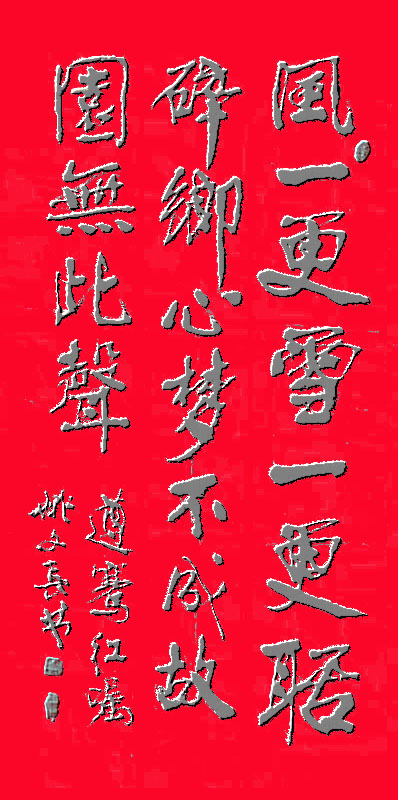 風一更雪一更聒
碎鄉心梦不成故
園無此聲
遵騫紅囑
姚文長书